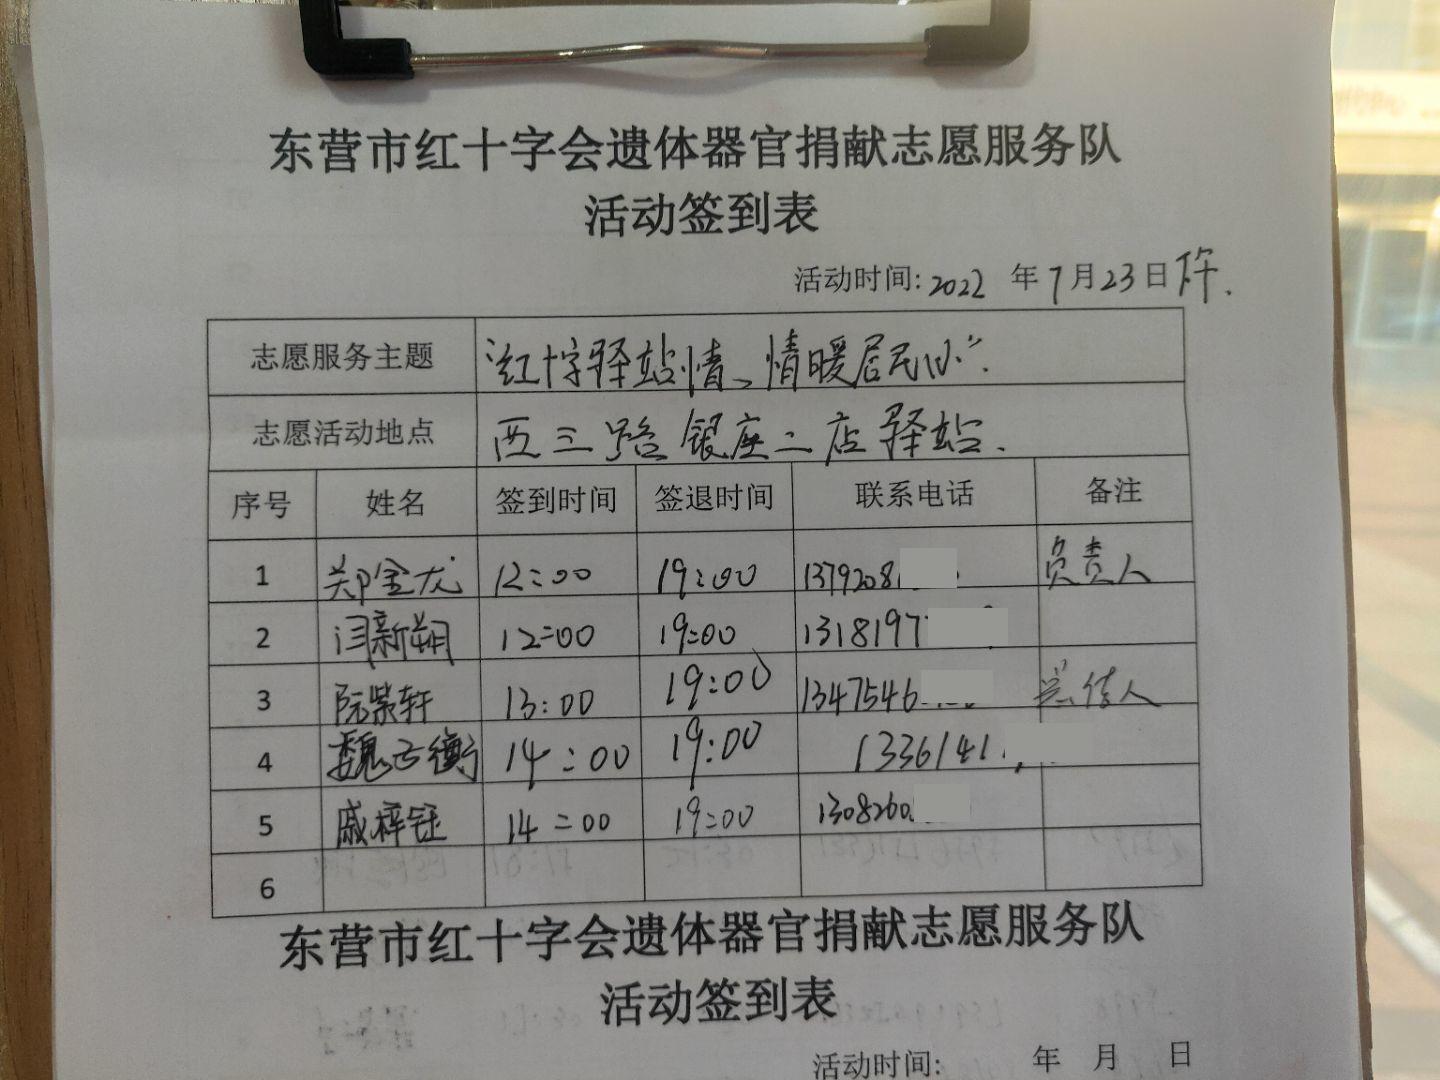 东营市红十字会遗体器官捐献志愿服务队
活动签到表
活动时间:2022 年7月23日下午.
志愿服务主题 “红十字驿站情、情暖居民心”.
志愿活动地点 西三路银座二店驿站.
序号 姓名 签到时间 签退时间 联系电话 备注
1 郑金龙 12:00 19:00 1379208 负责人
2 闫新朔 12:00 19:00 1318197
3 阮紫轩 13:00 19:00 1347546 宣传人
4 魏云衡 14:00 19:00 1336141
5 戚梓钰 14:00 19:00 1308260
6
东营市红十字会遗体器官捐献志愿服务队
活动签到表
活动时间: 年 月 日